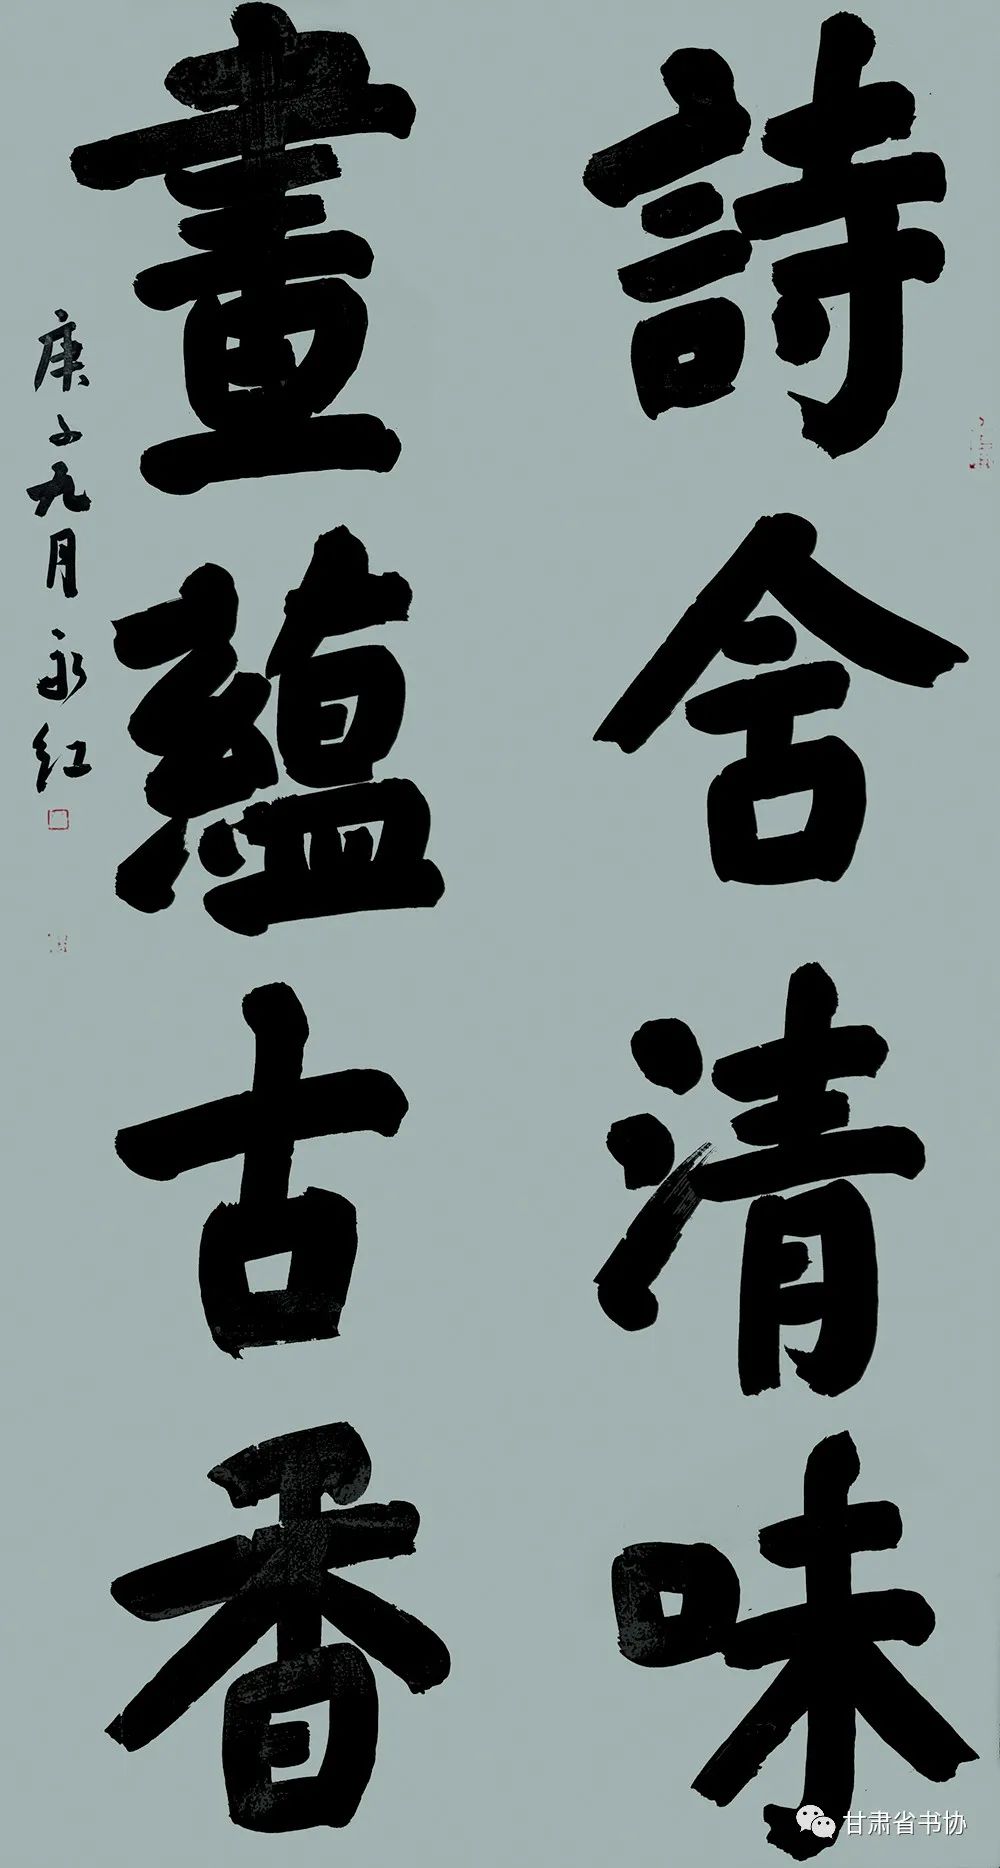 詩含清味
畫蘊古香
庚子九月永红
甘肃省书协